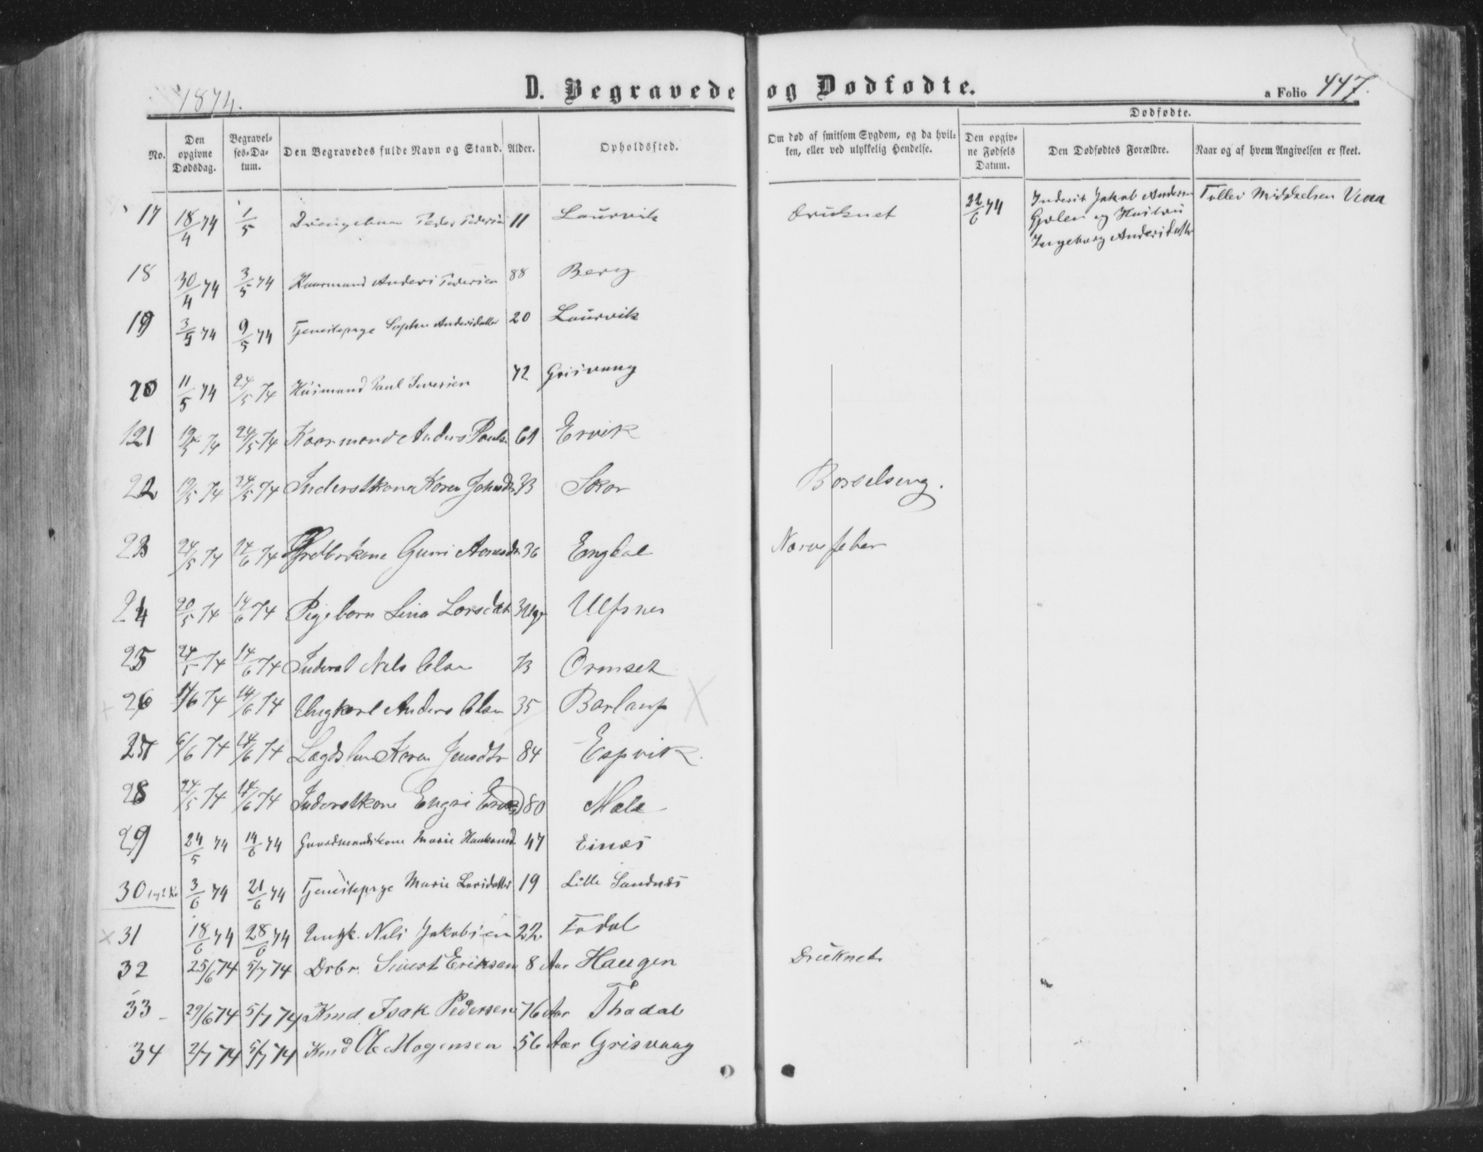 1874.
D. Begravede og Dødfødte.
a Folio 447.
No.
Den opgivne Dødsdag.
Begravelses-Datum.
Den Begravedes fulde Navn og Stand.
Alder.
Opholdssted.
Om død af smitsom Sygdom, og da hvilken, eller ved ulykkelig Hendelse.
Dødfødte.
Den opgivne Fødsels Datum.
Den Dødfødtes Forældre.
Naar og af hvem Angivelsen er skeet.
17 18/4 74 1/5 Drengebarn Peder Pedersen 11 Laurvik druknet 22/6 74 Inderst Jakob Andersen
og Hustru
Ingeborg Andersdatter
18 30/4 74 3/5 74 Kaarmand Anders Pedersen 88 Berg
19 3/5 74 9/5 74 Tjenestepige Andersdatter 20 Laurvik
20 11/5 74 24/5 74 Husmand Paul Iversen 72 Grisvaag
121 19/5 74 24/5 74 Kaarmand Anders 61 Ervik
22 19/5 74 24/5 74 Inderstkone Karen 73 Skor Barselseng.
23 24/5 74 14/6 74 Guri 36 Engdal Nervefeber
24 20/5 74 14/6 74 Pigebarn Lina Larsdat 3 Ugr Ulfsnes
25 24/5 74 14/6 74 Inderst Nils Olsen 73 Ormset
26 1/6 74 14/6 74 Ungkarl Anders Olsen 35 Bærlaup
27 6/6 74 14/6 74 Lægdslem Karen Jensdtr 84 Espvik
28 24/5 74 14/6 74 Inderstkone Engri 80 Mælæ
29 24/5 74 14/6 74 Gaardmandskone Marie 47 Einæs
30 3/6 74 21/6 74 Tjenestepige Marie Larsdatter 19 Lille Sandnæs
31 18/6 74 28/6 74 Ungk. Nils Jakobsen 22 Fodal
32 25/6 74 5/7 74 Drbr. Sivert Eriksen 8 Aar Haugen Druknet
33 29/6 74 5/7 74 Kmd Isak Pedersen 76 Aar Thadal
34 2/7 74 5/7 74 Kmd Ole Mogensen 56 Aar Grisvaag